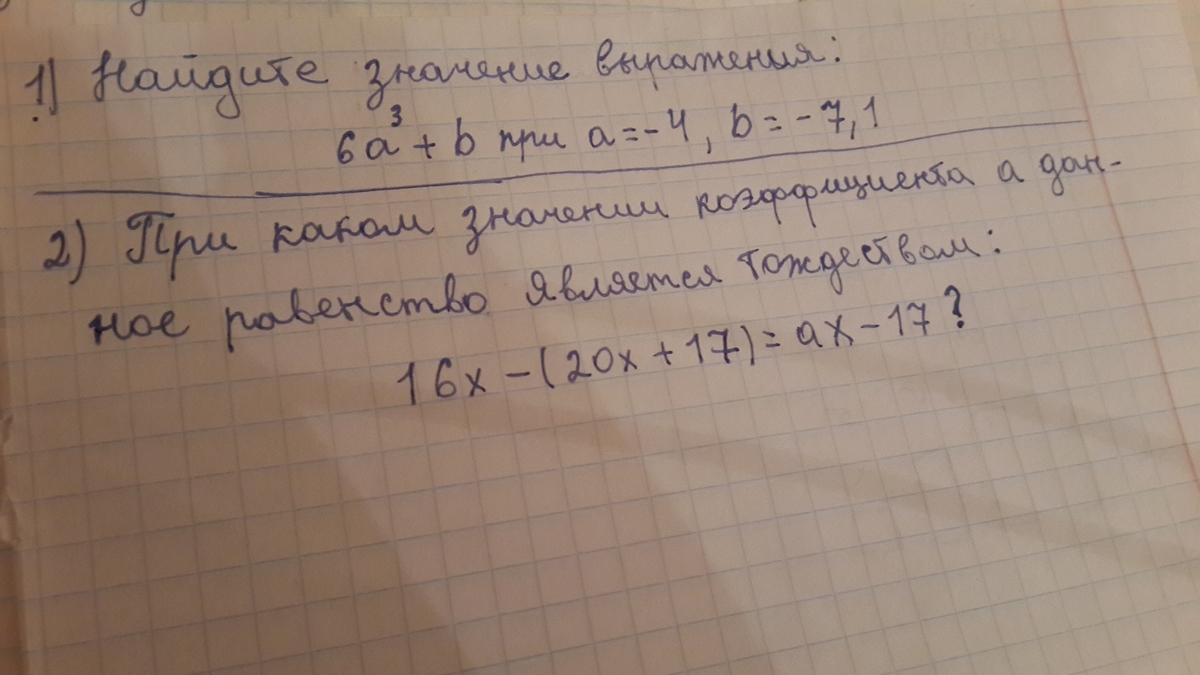 1) Найдите значение выражения:
6a³ + b при a = -4, b = -7,1
2) При каком значении коэффициента а дан-
ное равенство является тождеством:
16x - (20x + 17) = ax - 17?